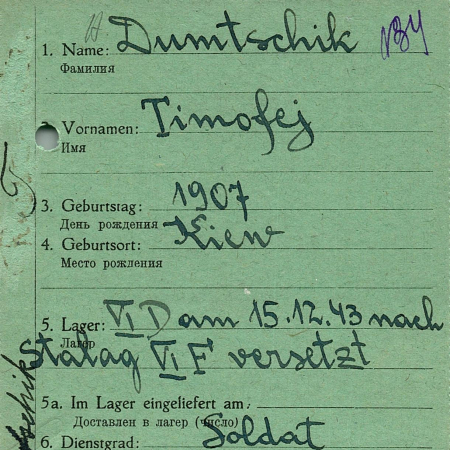 1. Name: Dumtschik
Фамилия
2. Vornamen: Timofej
Имя
3. Geburtstag: 1907
День рождения
4. Geburtsort: Kiew
Место рождения
5. Lager: VI D am 15.12.43 nach
Лагер
Stalag VI F versetzt
5a. Im Lager eingeliefert am:
Доставлен в лагер (число)
6. Dienstgrad: Soldat